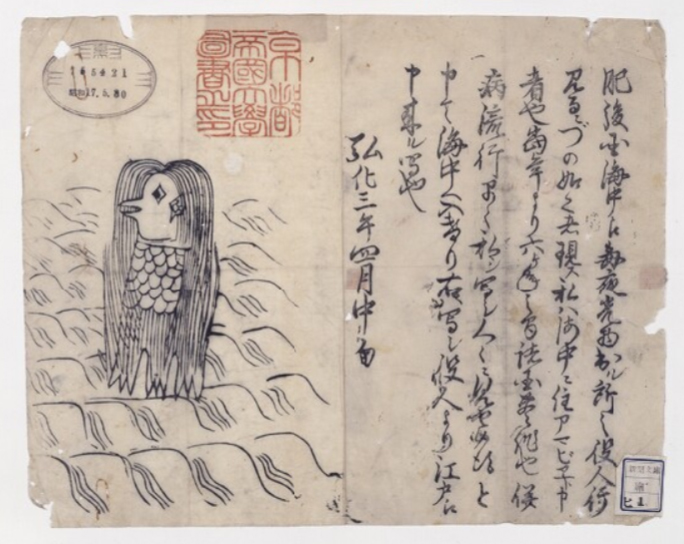 肥後国海中え毎夜光物出ル所之役人行
見るニづの如く者現ス私ハ海中ニ住アマビヱト申
者也當年より六ケ年之間諸国豊作也併
病流行早々私ヲ写シ人々ニ見セ候得と
申て海中へ入けり右写シ役人より江戸え
申来ル写也
弘化三年四月中旬
京都
帝國大學
圖書之印